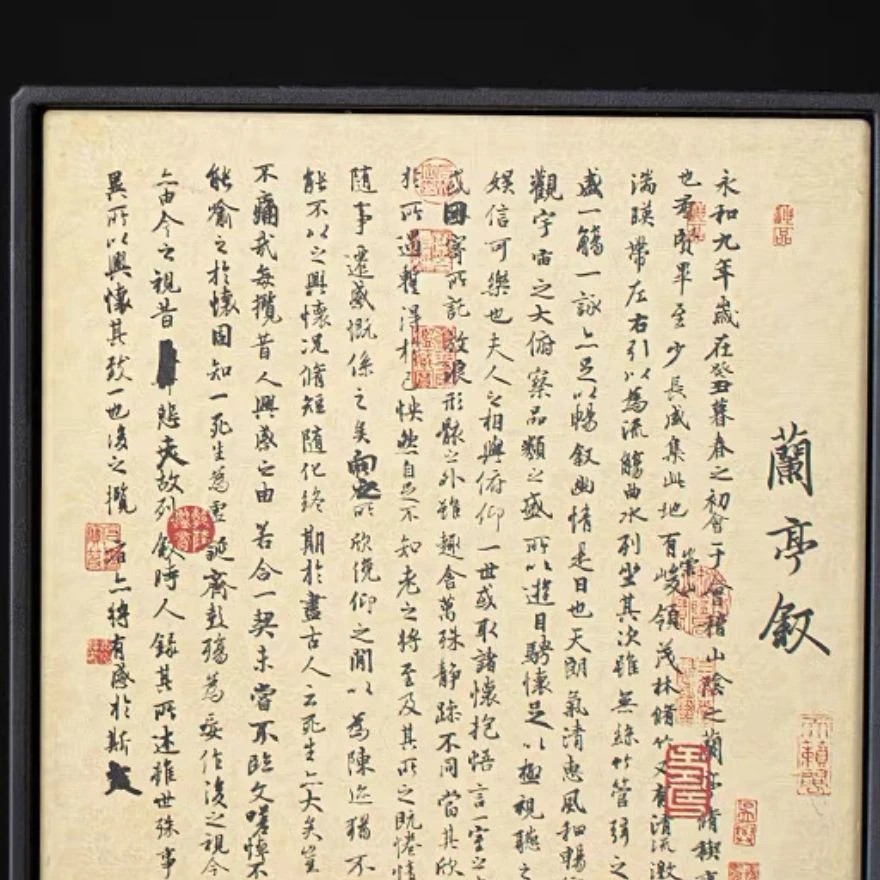 蘭亭叙
永和九年歲在癸丑暮春之初會于會稽山陰之蘭亭脩稧事
也羣賢畢至少長咸集此地有崇山峻領茂林脩竹又有清流激
湍暎帶左右引以為流觴曲水列坐其次雖無絲竹管弦之
盛一觴一詠亦足以暢叙幽情是日也天朗氣清惠風和暢
觀宇宙之大俯察品類之盛所以遊目騁懷足以極視聽之
娛信可樂也夫人之相與俯仰一世或取諸懷抱悟言一室之
或因寄所託放浪形骸之外雖趣舍萬殊静躁不同當其欣
於所遇暫得於己怏然自足不知老之將至及其所之既惓情
隨事遷感慨係之矣向之所欣俛仰之閒以為陳迹猶不
能不以之興懷况脩短隨化終期於盡古人云死生亦大矣豈
不痛哉每攬昔人興感之由若合一契未嘗不臨文嗟悼不
能喻之於懷固知一死生為虛誕齊彭殤為妄作後之視今
亦由今之視昔悲夫故列叙時人録其所述雖世殊事
異所以興懷其致一也後之攬者亦將有感於斯文